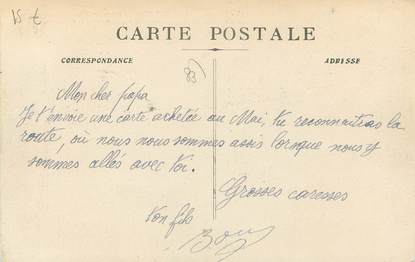 15 €
CARTE POSTALE
CORRESPONDANCE
ADRESSE
83
Mon cher papa
Je t'envoie une carte achetée au Mai, tu reconnaitras la
route, où nous nous sommes assis lorsque nous y
sommes allés avec toi.
Grosses caresses
Ton fils